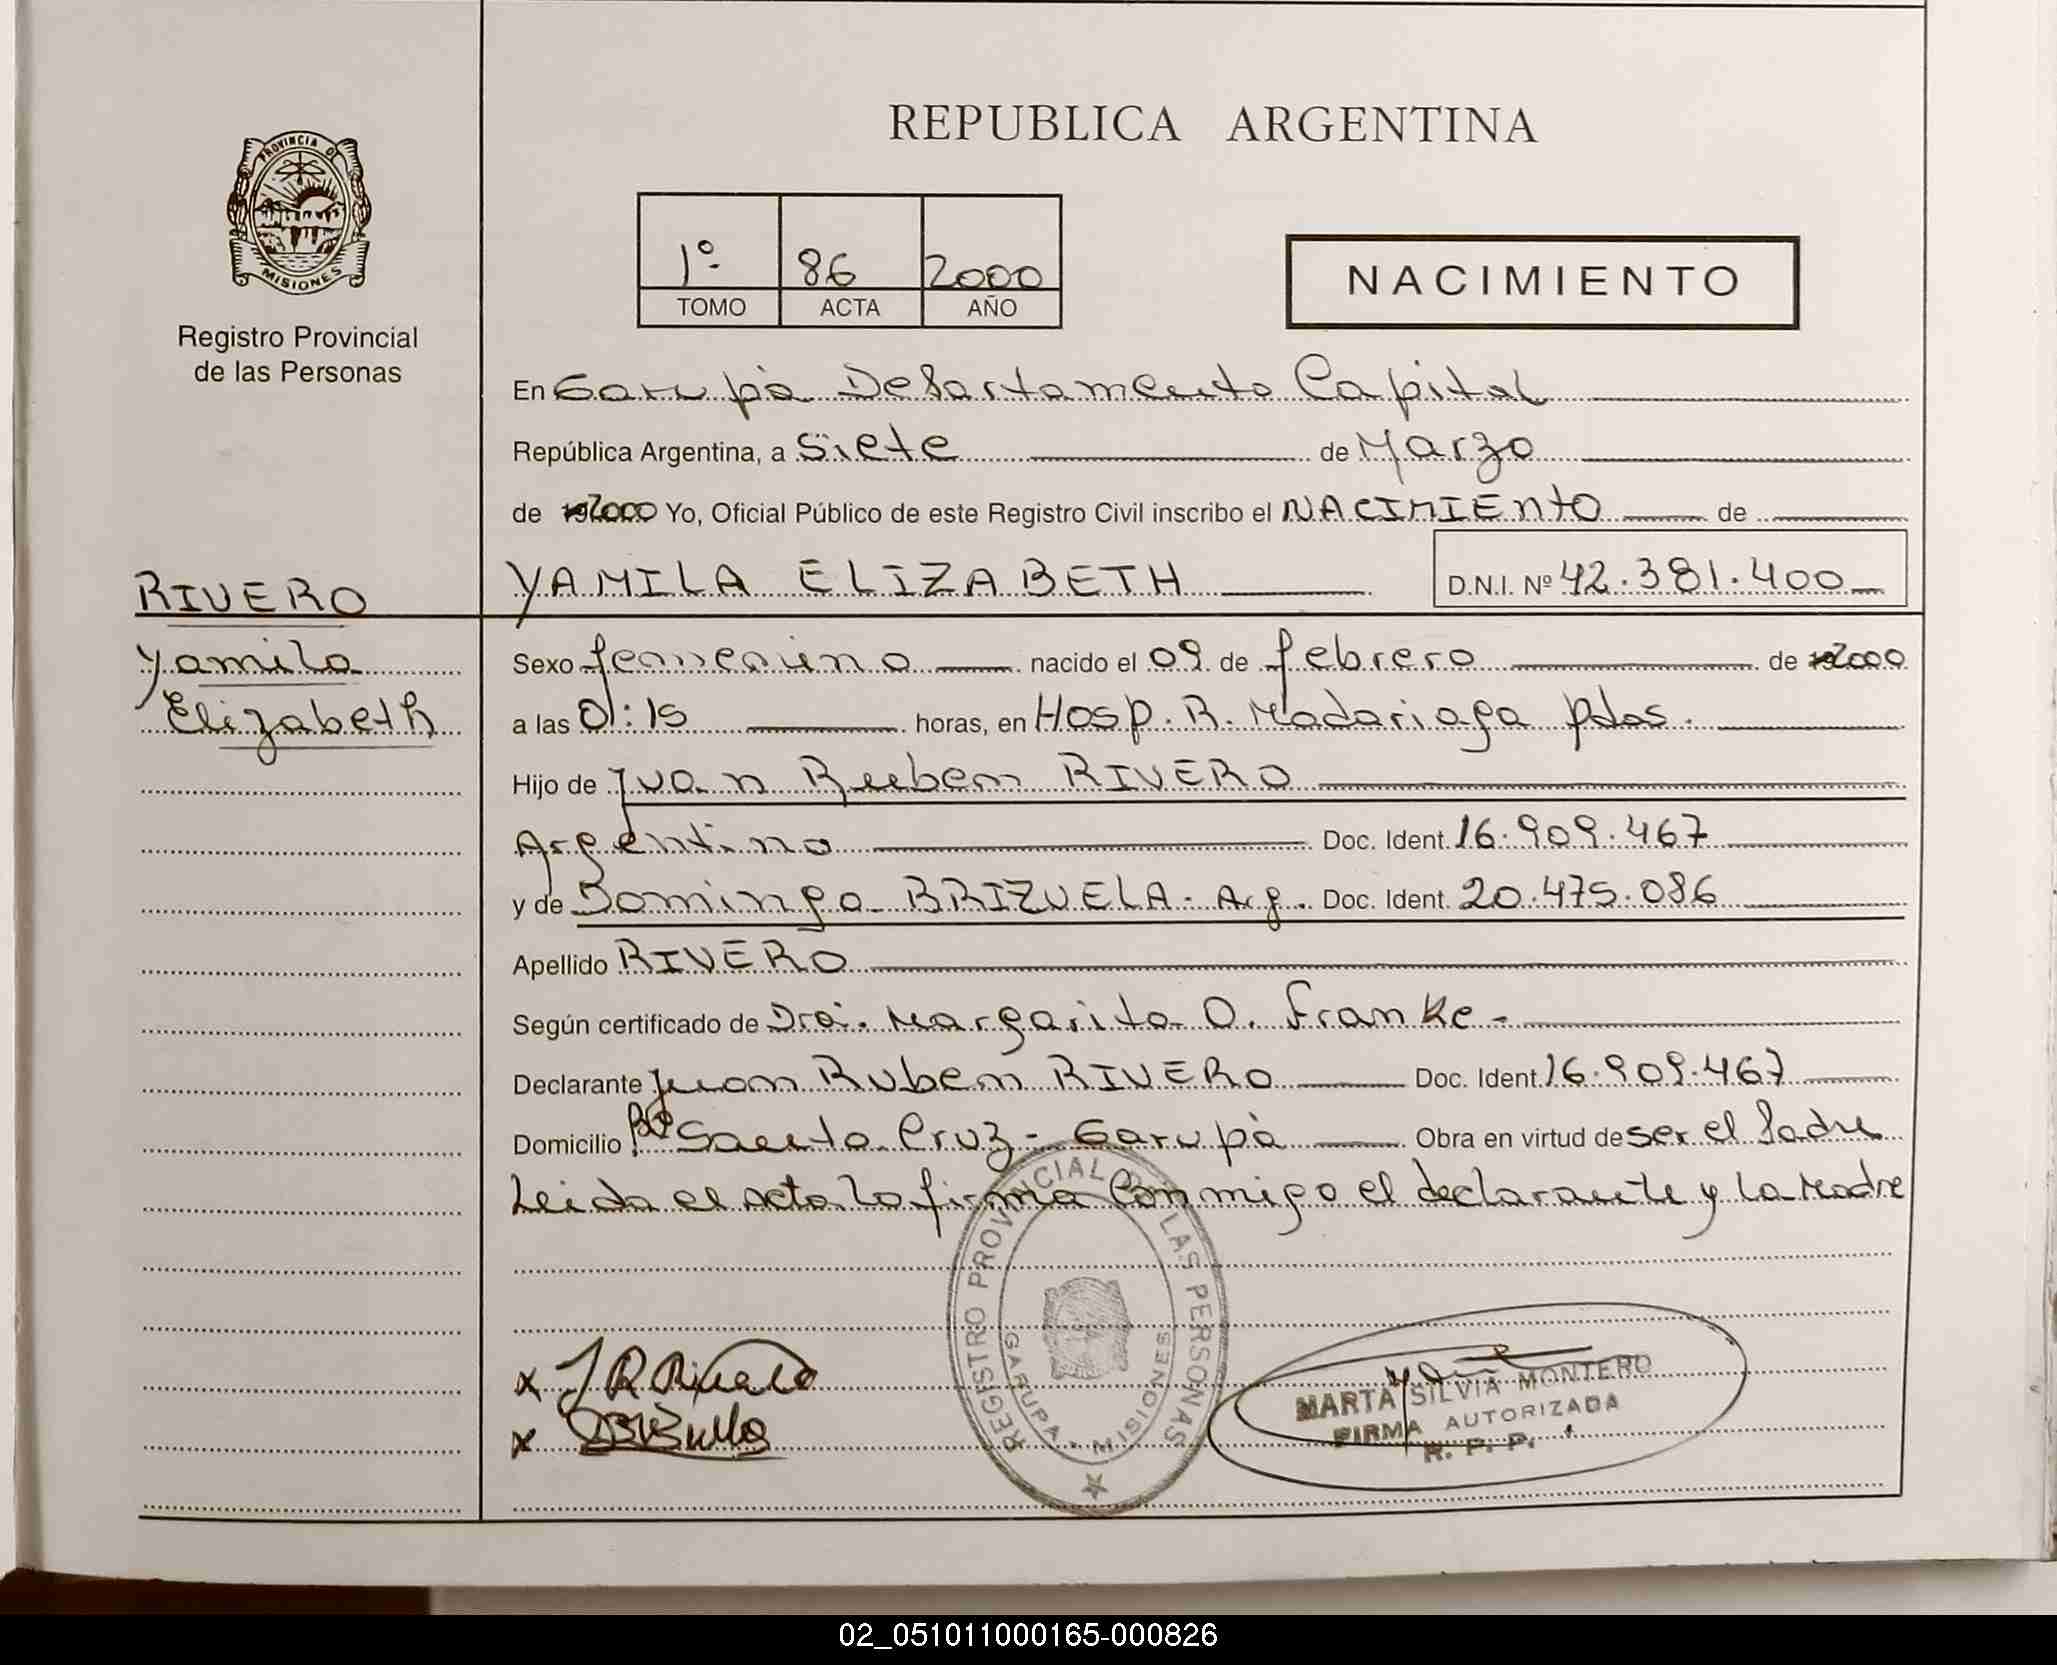 REPUBLICA ARGENTINA
PROVINCIA D
MISIONES
Registro Provincial
de las Personas
1º 86 2000
TOMO ACTA AÑO
NACIMIENTO
En Garupá Departamento Capital
República Argentina, a Siete de Marzo
de 2000 Yo, Oficial Público de este Registro Civil inscribo el NACIMIENTO de
YAMILA ELIZABETH D.N.I. Nº 42.381.400
RIVERO
Yamila
Elizabeth
Sexo femenino nacido el 09 de febrero de 2000
a las 01:15 horas, en Hosp. R. Madariaga Pdas.
Hijo de Juan Ruben RIVERO
Argentino Doc. Ident. 16.909.467
y de Dominga BRIZUELA - Arg. Doc. Ident. 20.475.086
Apellido RIVERO
Según certificado de Dra. Margarita O. Franke -
Declarante Juan Ruben RIVERO Doc. Ident. 16.909.467
Domicilio Bº Santa Cruz - Garupá Obra en virtud de ser el Padre
Leida el acta la firma conmigo el declarante y la Madre
REGISTRO PROVINCIAL DE LAS PERSONAS
GARUPA - MISIONES
x J R Rivero
x
MARTA SILVIA MONTERO
FIRMA AUTORIZADA
R. P. P.
02_051011000165-000826